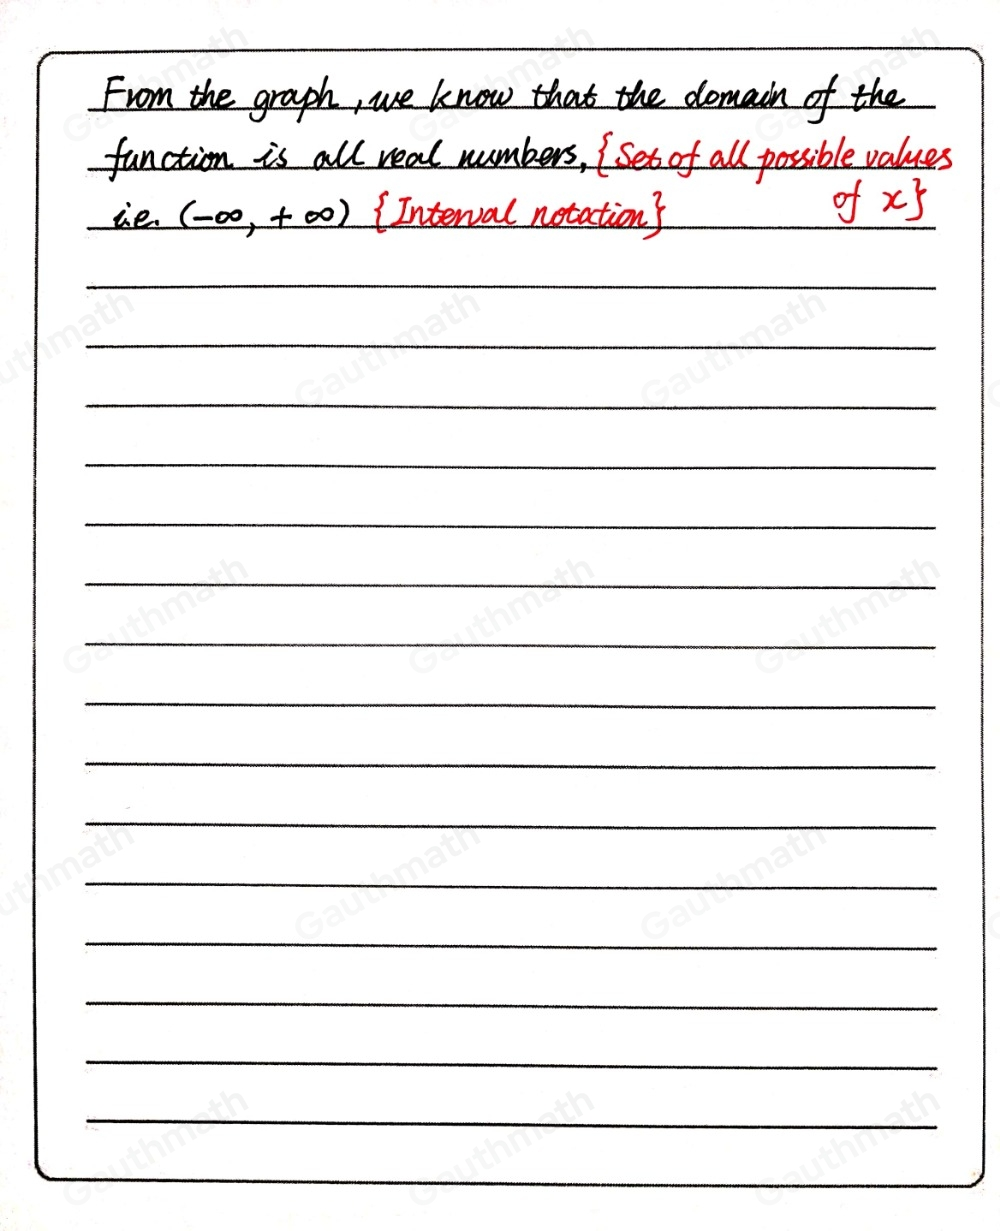 From the graph, we know that the domain of the
function is all real numbers, {Set of all possible values
of x}
i.e. (-∞, +∞) {Interval notation}
Gauthmath